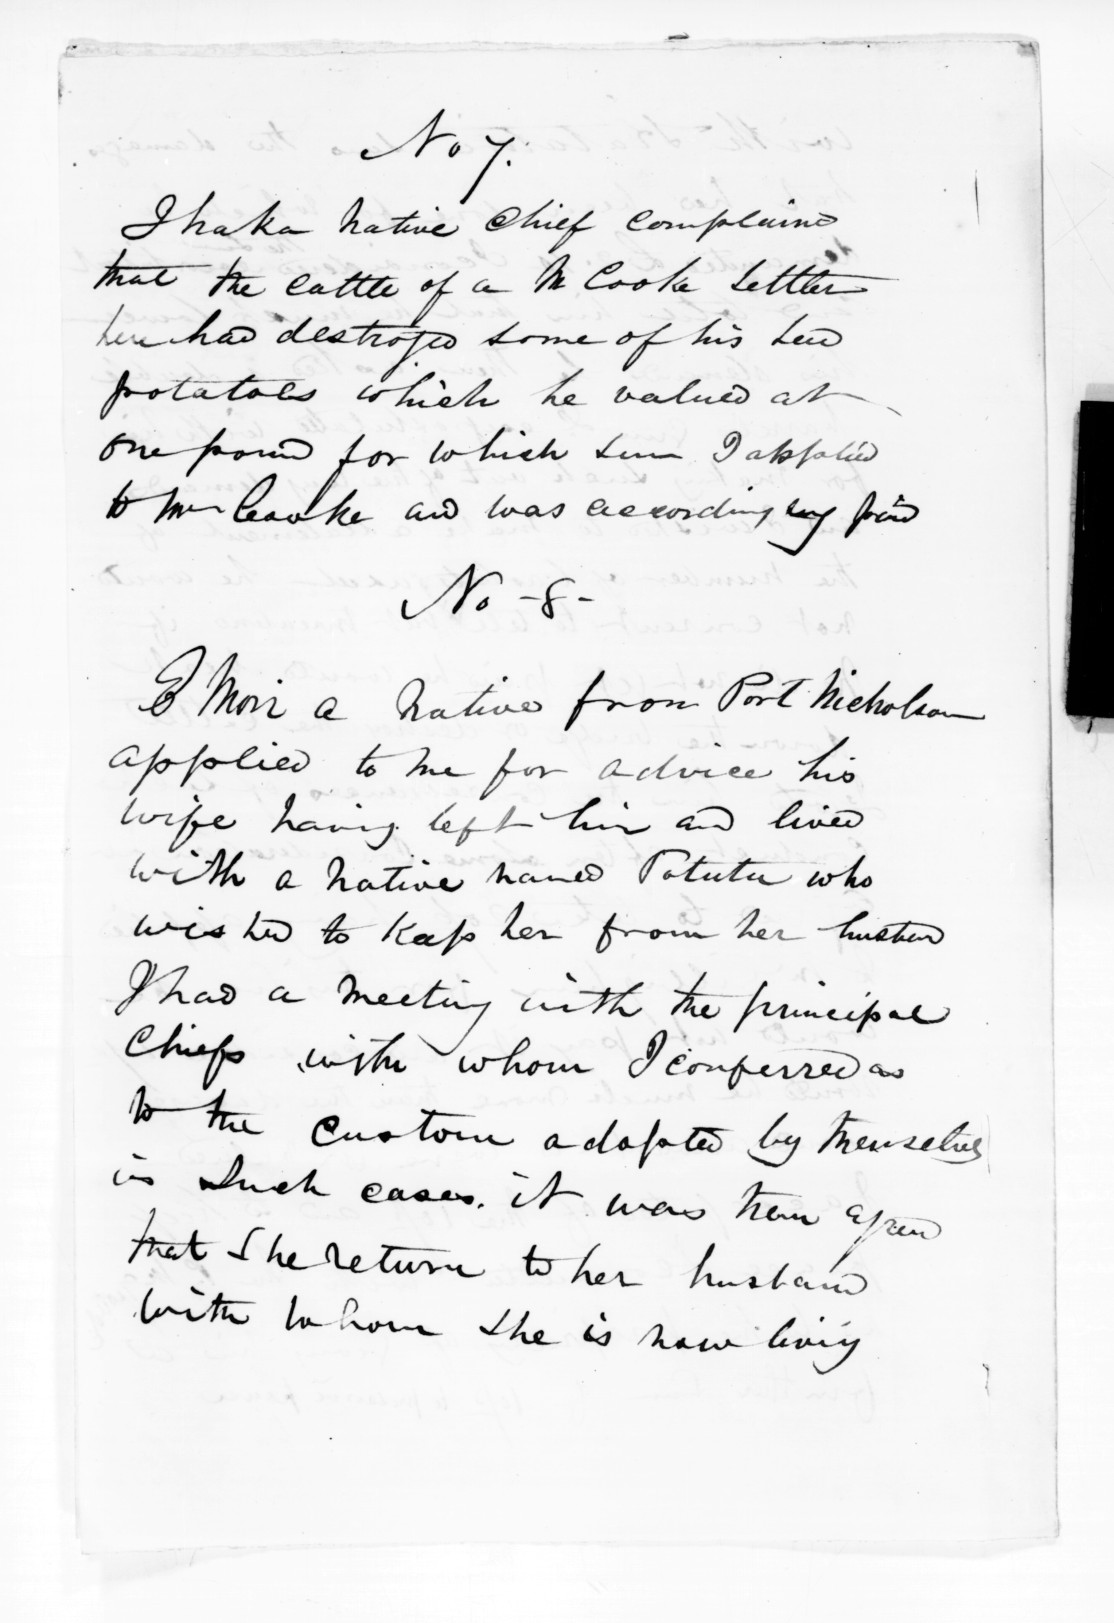 No 7.
Ihaka Native Chief complains
that the cattle of a Mr Cooke Settler
here had destroyed some of his seed
potatoes which he valued at
one pound for which sum I applied
to Mr Cooke and was accordingly paid
No - 8 -
E Mori a Native from Port Nicholson
applied to me for advice his
wife having left him and lived
with a Native named Patutu who
wished to keep her from her husband
I had a meeting with the principal
Chiefs with whom I conferred as
to the custom adopted by themselves
in such cases. it was then agreed
that she return to her husband
with whom she is now living